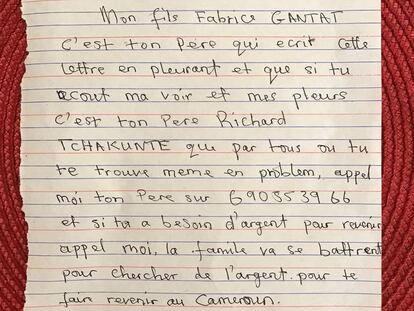 Mon fils Fabrice GANTAT
C'est ton Pere qui ecrit cette
lettre en pleurant et que si tu
ecout ma voir et mes pleurs
c'est ton Pere Richard
TCHAKUNTE que par tous ou tu
te trouve meme en problem, appel
moi ton Pere sur 690553966
et si tu a besoin d'argent pour revenir
appel moi, la famile va se battrent
pour chercher de l'argent pour te
faire revenir au Cameroun.